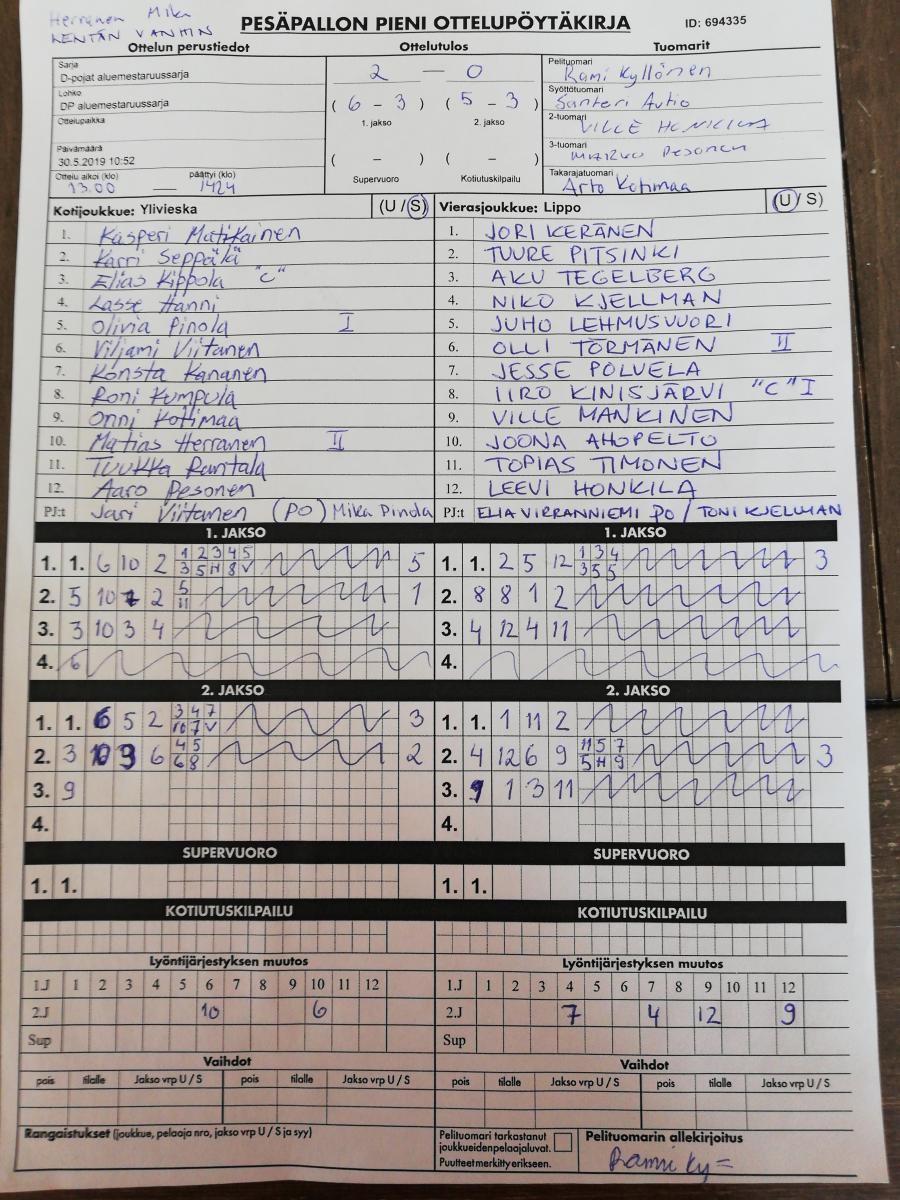 Herranen Mika
KENTÄN VANHIN
PESÄPALLON PIENI OTTELUPÖYTÄKIRJA ID: 694335
Ottelun perustiedot Ottelutulos Tuomarit
Sarja
D-pojat aluemestaruussarja
Lohko
DP aluemestaruussarja
Ottelupaikka
Päivämäärä
30.5.2019 10:52
Ottelu alkoi (klo) päättyi (klo)
13.00 — 1424
2 — 0
( 6 - 3 ) ( 5 - 3 )
1. jakso 2. jakso
( - ) ( - )
Supervuoro Kotiutuskilpailu
Pelituomari
Rami Kyllönen
Syöttötuomari
Santeri Autio
2-tuomari
VILLE HONKILA
3-tuomari
Marko Pesonen
Takarajatuomari
Arto Kotimaa
Kotijoukkue: Ylivieska (U / S)
1. Kasperi Matikainen
2. Karri Seppälä
3. Elias Kippola "C"
4. Lasse Hanni
5. Olivia Pinola I
6. Viljami Viitanen
7. Konsta Kananen
8. Roni Kumpula
9. Onni Kotimaa
10. Matias Herranen II
11. Tuukka Rantala
12. Aaro Pesonen
PJ:t Jari Viitanen (PO) Mika Pinola
Vierasjoukkue: Lippo (U / S)
1. JORI KERÄNEN
2. TUURE PITSINKI
3. AKU TEGELBERG
4. NIKO KJELLMAN
5. JUHO LEHMUSVUORI
6. OLLI TÖRMÄNEN II
7. JESSE POLVELA
8. IIRO KINISJÄRVI "C" I
9. VILLE MANKINEN
10. JOONA AHOPELTO
11. TOPIAS TIMONEN
12. LEEVI HONKILA
PJ:t ELIA VIRRANNIEMI PO / TONI KJELLMAN
1. JAKSO
1. 1. 6 10 2 1 2 3 4 5 5
3 5 H 8 V
2. 5 10 2 5 1
11
3. 3 10 3 4
4. 6
1. JAKSO
1. 1. 2 5 12 1 3 4 3
3 5 5
2. 8 8 1 2
3. 4 12 4 11
4.
2. JAKSO
1. 1. 6 5 2 3 4 7 3
10 7 V
2. 3 10 9 6 4 5 2
6 8
3. 9
4.
2. JAKSO
1. 1. 1 11 2
2. 4 12 6 9 11 5 7 3
5 H 9
3. 9 1 3 11
4.
SUPERVUORO SUPERVUORO
1. 1. 1. 1.
KOTIUTUSKILPAILU KOTIUTUSKILPAILU
Lyöntijärjestyksen muutos Lyöntijärjestyksen muutos
1.J 1 2 3 4 5 6 7 8 9 10 11 12 1.J 1 2 3 4 5 6 7 8 9 10 11 12
2.J 10 6 2.J 7 4 12 9
Sup Sup
Vaihdot Vaihdot
pois tilalle Jakso vrp U / S pois tilalle Jakso vrp U / S pois tilalle Jakso vrp U / S pois tilalle Jakso vrp U / S
Rangaistukset (joukkue, pelaaja nro, jakso vrp U / S ja syy)
Pelituomari tarkastanut
joukkueidenpelaajaluvat.
Puutteet merkitty erikseen.
Pelituomarin allekirjoitus
Rami Ky